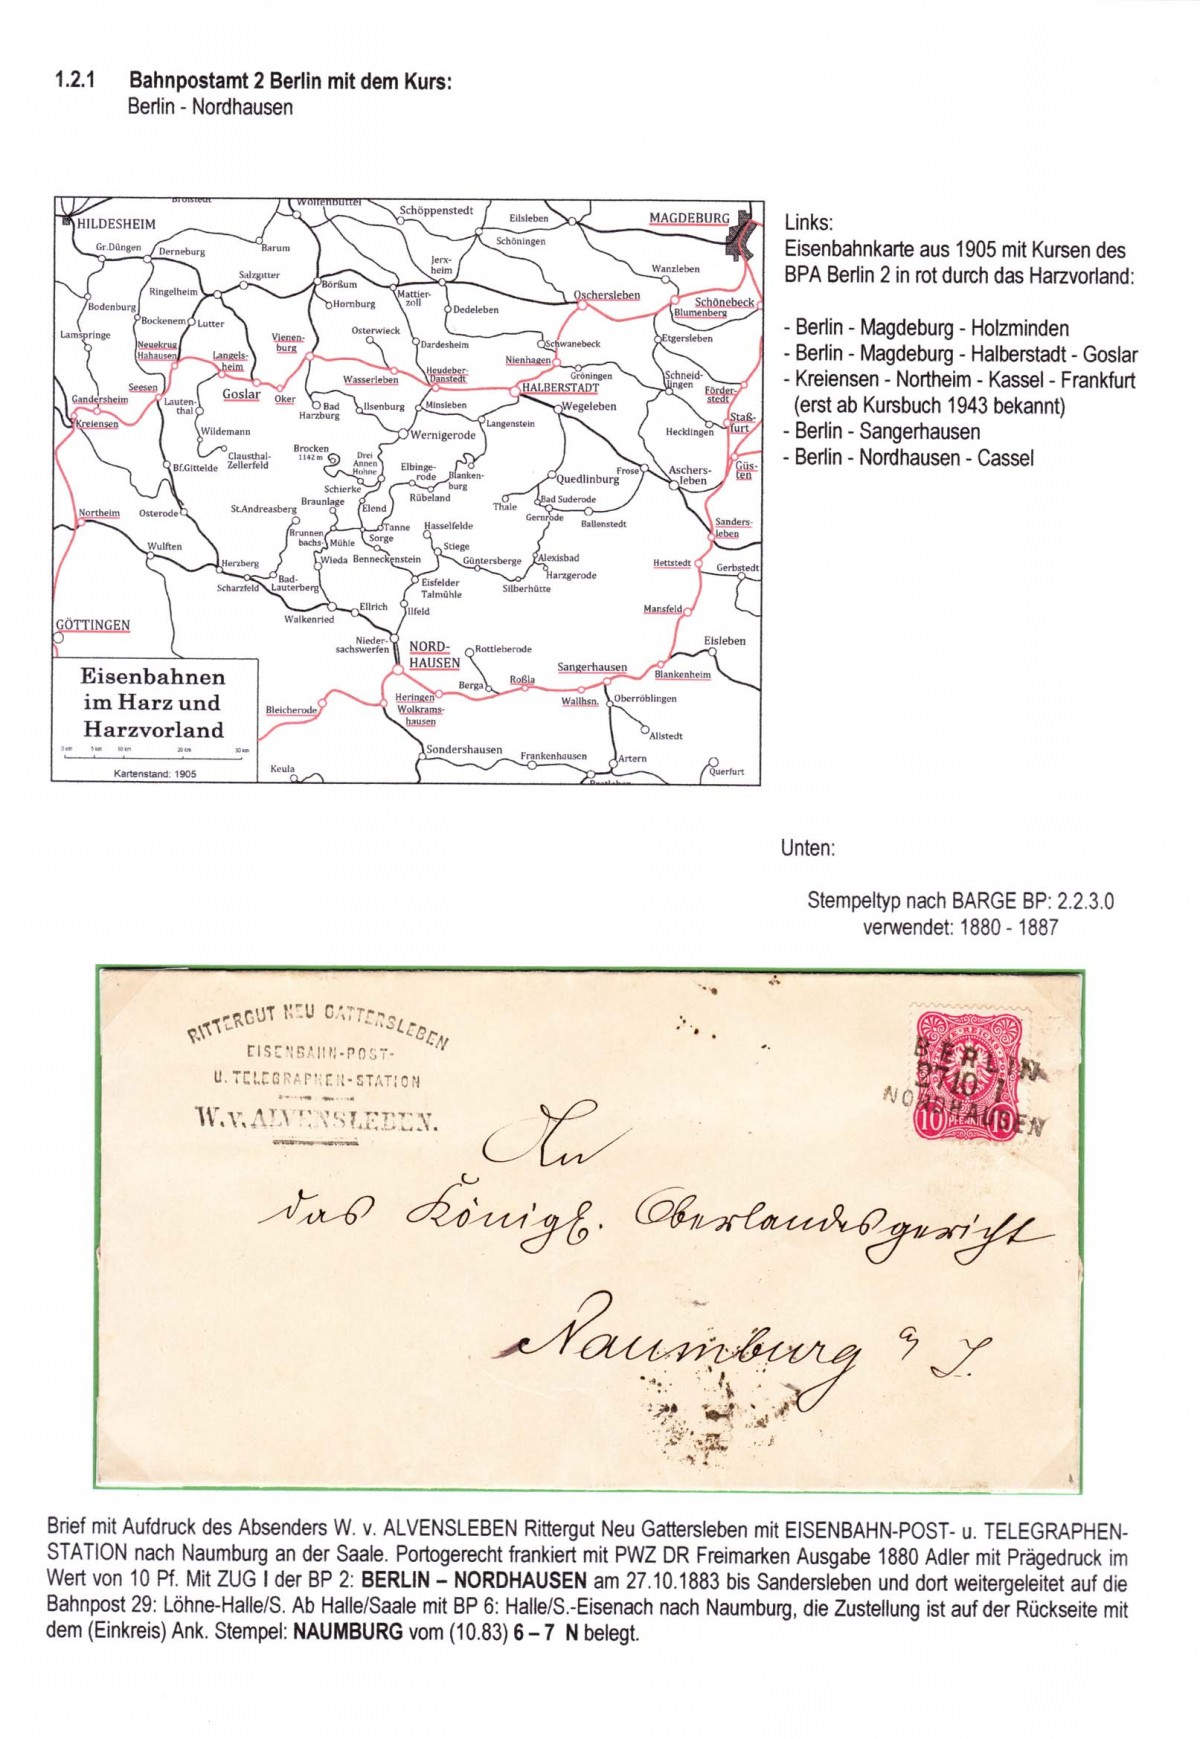 1.2.1 Bahnpostamt 2 Berlin mit dem Kurs:
Berlin - Nordhausen
HILDESHEIM
Wolfenbüttel
Schöppenstedt
Eilsleben
MAGDEBURG
Gr.Düngen
Derneburg
Barum
Schöningen
Jerx-
heim
Wanzleben
Salzgitter
Ringelheim
Börßum
Mattier-
zoll
Oschersleben
Schönebeck
Blumenberg
Bodenburg
Hornburg
Dedeleben
Bockenem
Lutter
Lamspringe
Osterwieck
Vienen-
burg
Dardesheim
Schwanebeck
Etgersleben
Neuekrug
Hahausen
Langels-
heim
Nienhagen
Wasserleben
Heudeber-
Danstedt
Gröningen
Schneid-
lingen
Förder-
stedt
Seesen
Goslar
Oker
HALBERSTADT
Gandersheim
Kreiensen
Lauten-
thal
Bad
Harzburg
Ilsenburg
Minsleben
Wegeleben
Langenstein
Staß-
furt
Hecklingen
Wildemann
Wernigerode
Clausthal-
Zellerfeld
Brocken
1142 m
Drei
Annen
Hohne
Bf.Gittelde
Elbinge-
rode
Blanken-
burg
Rübeland
Quedlinburg
Frose
Aschers-
leben
Güs-
ten
Schierke
Braunlage
Elend
Thale
Bad Suderode
Gernrode
Ballenstedt
St.Andreasberg
Northeim
Osterode
Brunnen
bachs-
Mühle
Tanne
Sorge
Hasselfelde
Sanders-
leben
Wulften
Stiege
Wieda
Benneckenstein
Güntersberge
Alexisbad
Harzgerode
Silberhütte
Hettstedt
Gerbstedt
Herzberg
Scharzfeld
Bad-
Lauterberg
Eisfelder
Talmühle
Ellrich
Ilfeld
Walkenried
Mansfeld
GÖTTINGEN
Nieder-
sachswerfen
NORD-
HAUSEN
Rottleberode
Eisleben
Sangerhausen
Blankenheim
Berga
Roßla
Wallhsn.
Oberröblingen
Heringen
Wolkrams-
hausen
Bleicherode
Allstedt
Sondershausen
Frankenhausen
Artern
Querfurt
Keula
Eisenbahnen
im Harz und
Harzvorland
0 km 5 km 10 km 20 km 30 km
Kartenstand: 1905
Links:
Eisenbahnkarte aus 1905 mit Kursen des
BPA Berlin 2 in rot durch das Harzvorland:
- Berlin - Magdeburg - Holzminden
- Berlin - Magdeburg - Halberstadt - Goslar
- Kreiensen - Northeim - Kassel - Frankfurt
(erst ab Kursbuch 1943 bekannt)
- Berlin - Sangerhausen
- Berlin - Nordhausen - Cassel
Unten:
Stempeltyp nach BARGE BP: 2.2.3.0
verwendet: 1880 - 1887
RITTERGUT NEU GATTERSLEBEN
EISENBAHN-POST-
U. TELEGRAPHEN-STATION
W. v. ALVENSLEBEN.
BERLIN
27 10 I
NORDHAUSEN
10 PFENNIG
An
das Königl. Oberlandesgericht
Naumburg a/S.
Brief mit Aufdruck des Absenders W. v. ALVENSLEBEN Rittergut Neu Gattersleben mit EISENBAHN-POST- u. TELEGRAPHEN-
STATION nach Naumburg an der Saale. Portogerecht frankiert mit PWZ DR Freimarken Ausgabe 1880 Adler mit Prägedruck im
Wert von 10 Pf. Mit ZUG I der BP 2: BERLIN – NORDHAUSEN am 27.10.1883 bis Sandersleben und dort weitergeleitet auf die
Bahnpost 29: Löhne-Halle/S. Ab Halle/Saale mit BP 6: Halle/S.-Eisenach nach Naumburg, die Zustellung ist auf der Rückseite mit
dem (Einkreis) Ank. Stempel: NAUMBURG vom (10.83) 6 – 7 N belegt.